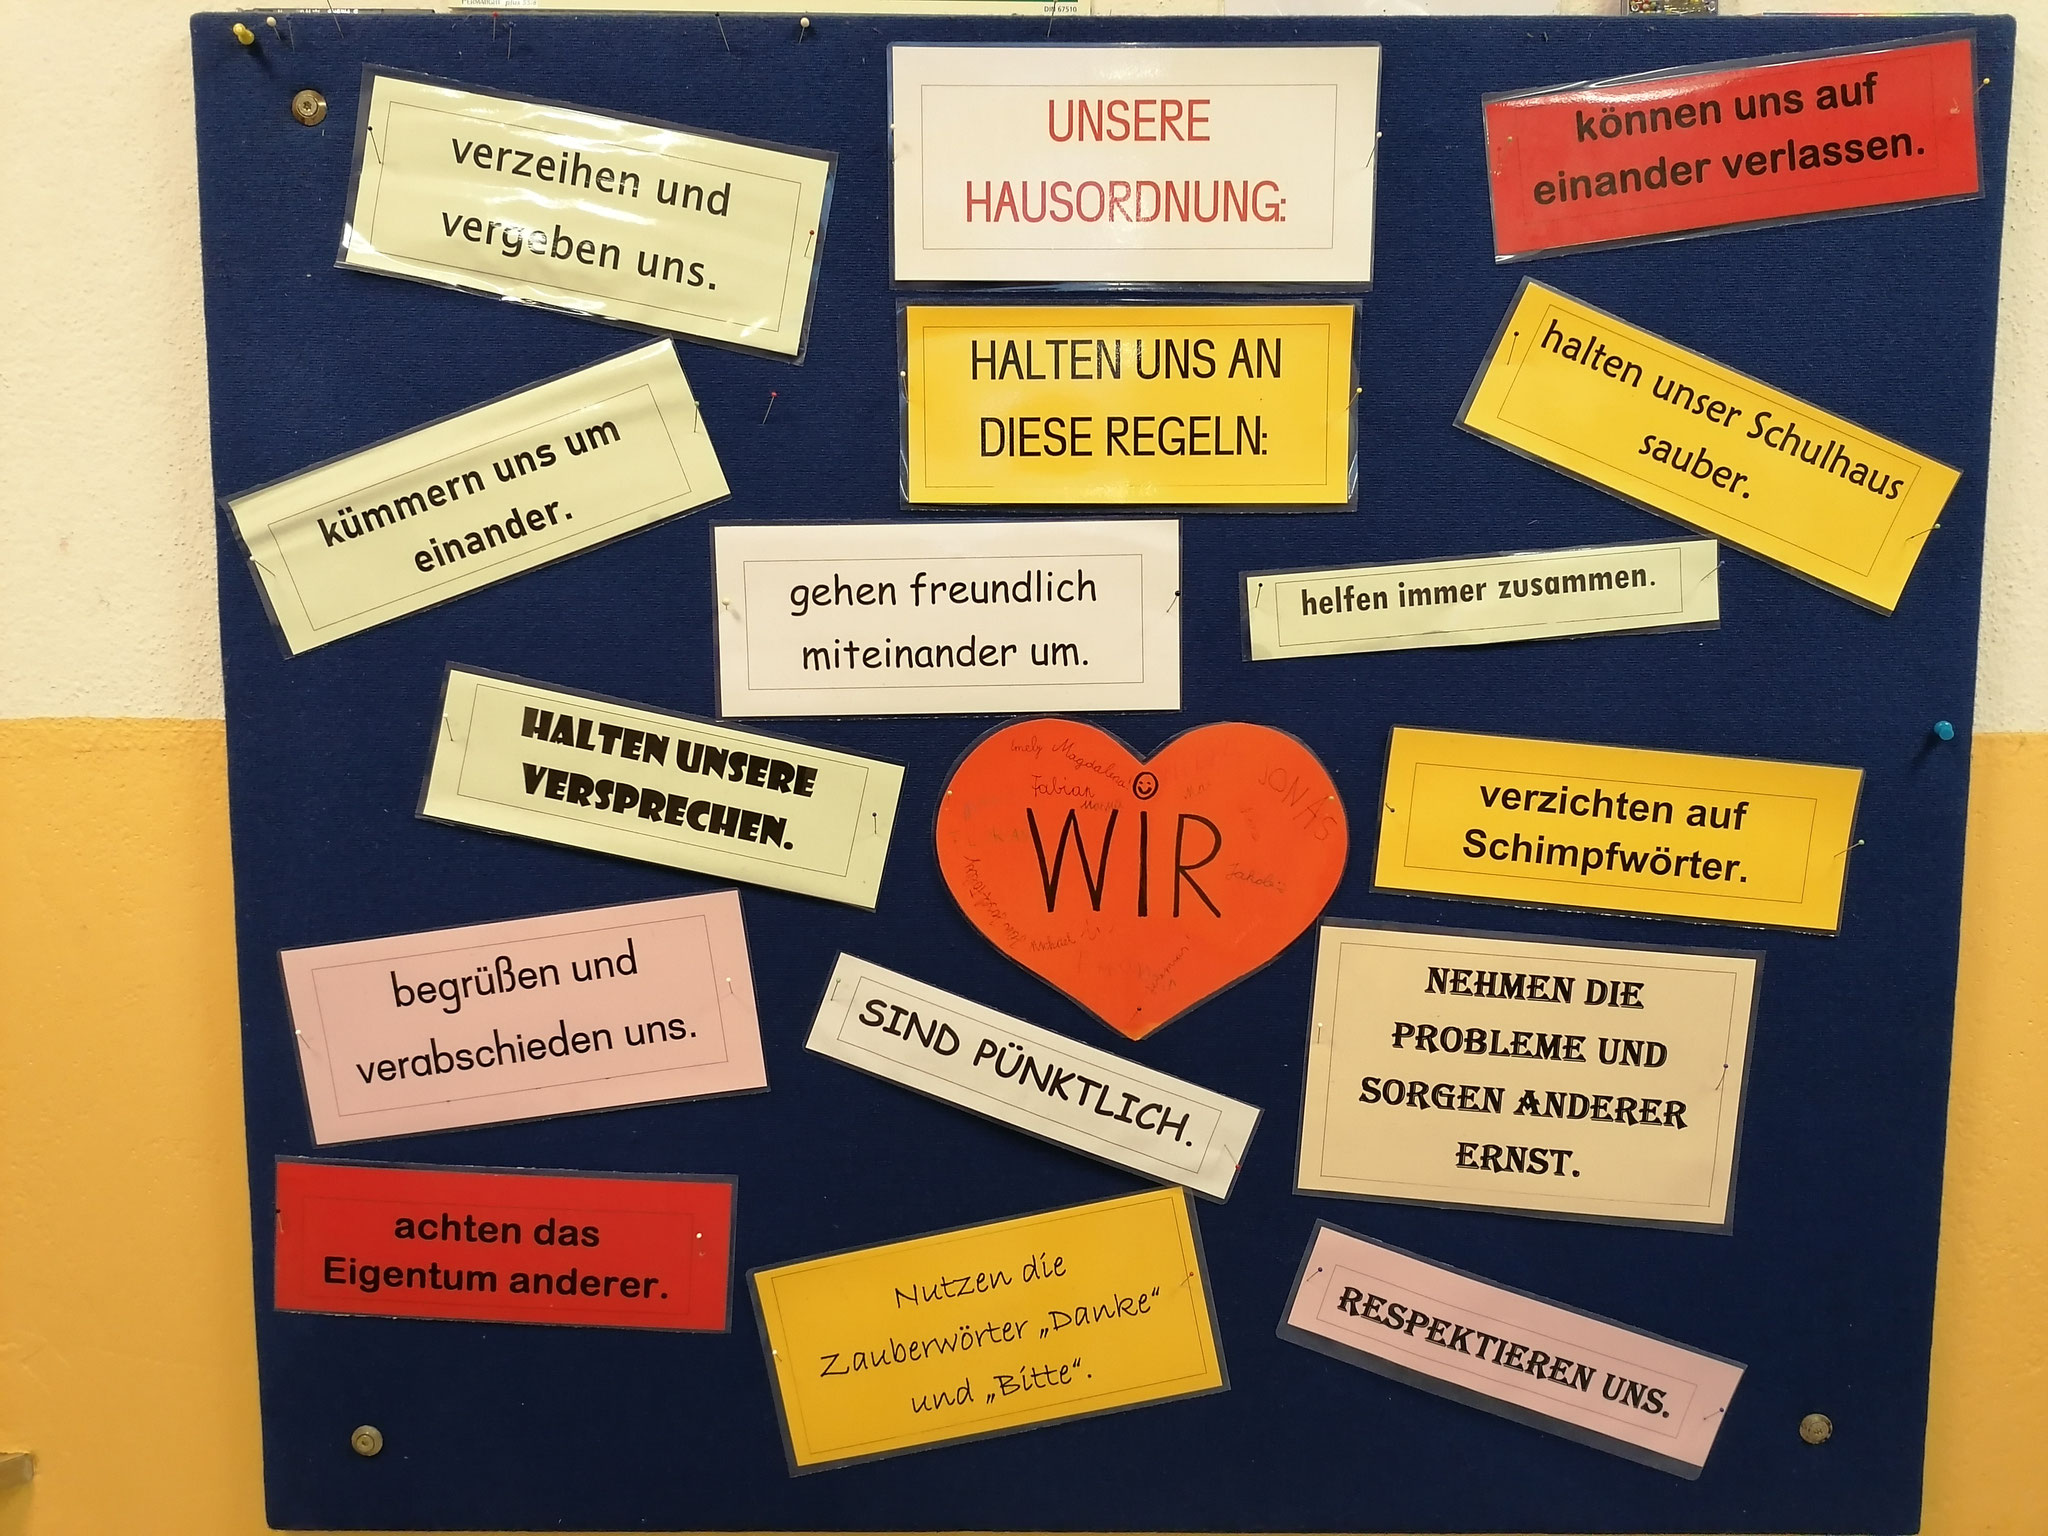 DIN 67510
UNSERE
HAUSORDNUNG:
verzeihen und
vergeben uns.
können uns auf
einander verlassen.
HALTEN UNS AN
DIESE REGELN:
halten unser Schulhaus
sauber.
kümmern uns um
einander.
gehen freundlich
miteinander um.
helfen immer zusammen.
HALTEN UNSERE
VERSPRECHEN.
Emely Magdalena
Fabian
JONAS
WIR
Michael
verzichten auf
Schimpfwörter.
begrüßen und
verabschieden uns.
SIND PÜNKTLICH.
NEHMEN DIE
PROBLEME UND
SORGEN ANDERER
ERNST.
achten das
Eigentum anderer.
Nutzen die
Zauberwörter „Danke“
und „Bitte“.
RESPEKTIEREN UNS.